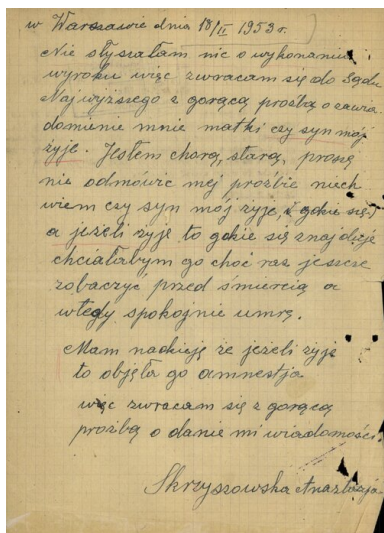 w Warszawie dnia 18/II 1953 r.
Nie słyszałam nic o wykonaniu
wyroku więc zwracam się do Sądu
Najwyższego z gorącą prośbą o zawia-
domienie mnie matki czy syn mój
żyje. Jestem chorą, starą, proszę
nie odmówić mej proźbie niech
wiem czy syn mój żyje,
a jeżeli żyje to gdzie się znajduje
chciałabym go choć raz jeszcze
zobaczyć przed śmiercią a
wtedy spokojnie umrę.
Mam nadzieję że jeżeli żyje
to objęła go amnestja
więc zwracam się z gorącą
proźbą o danie mi wiadomości
Skrzyszowska Anastazja